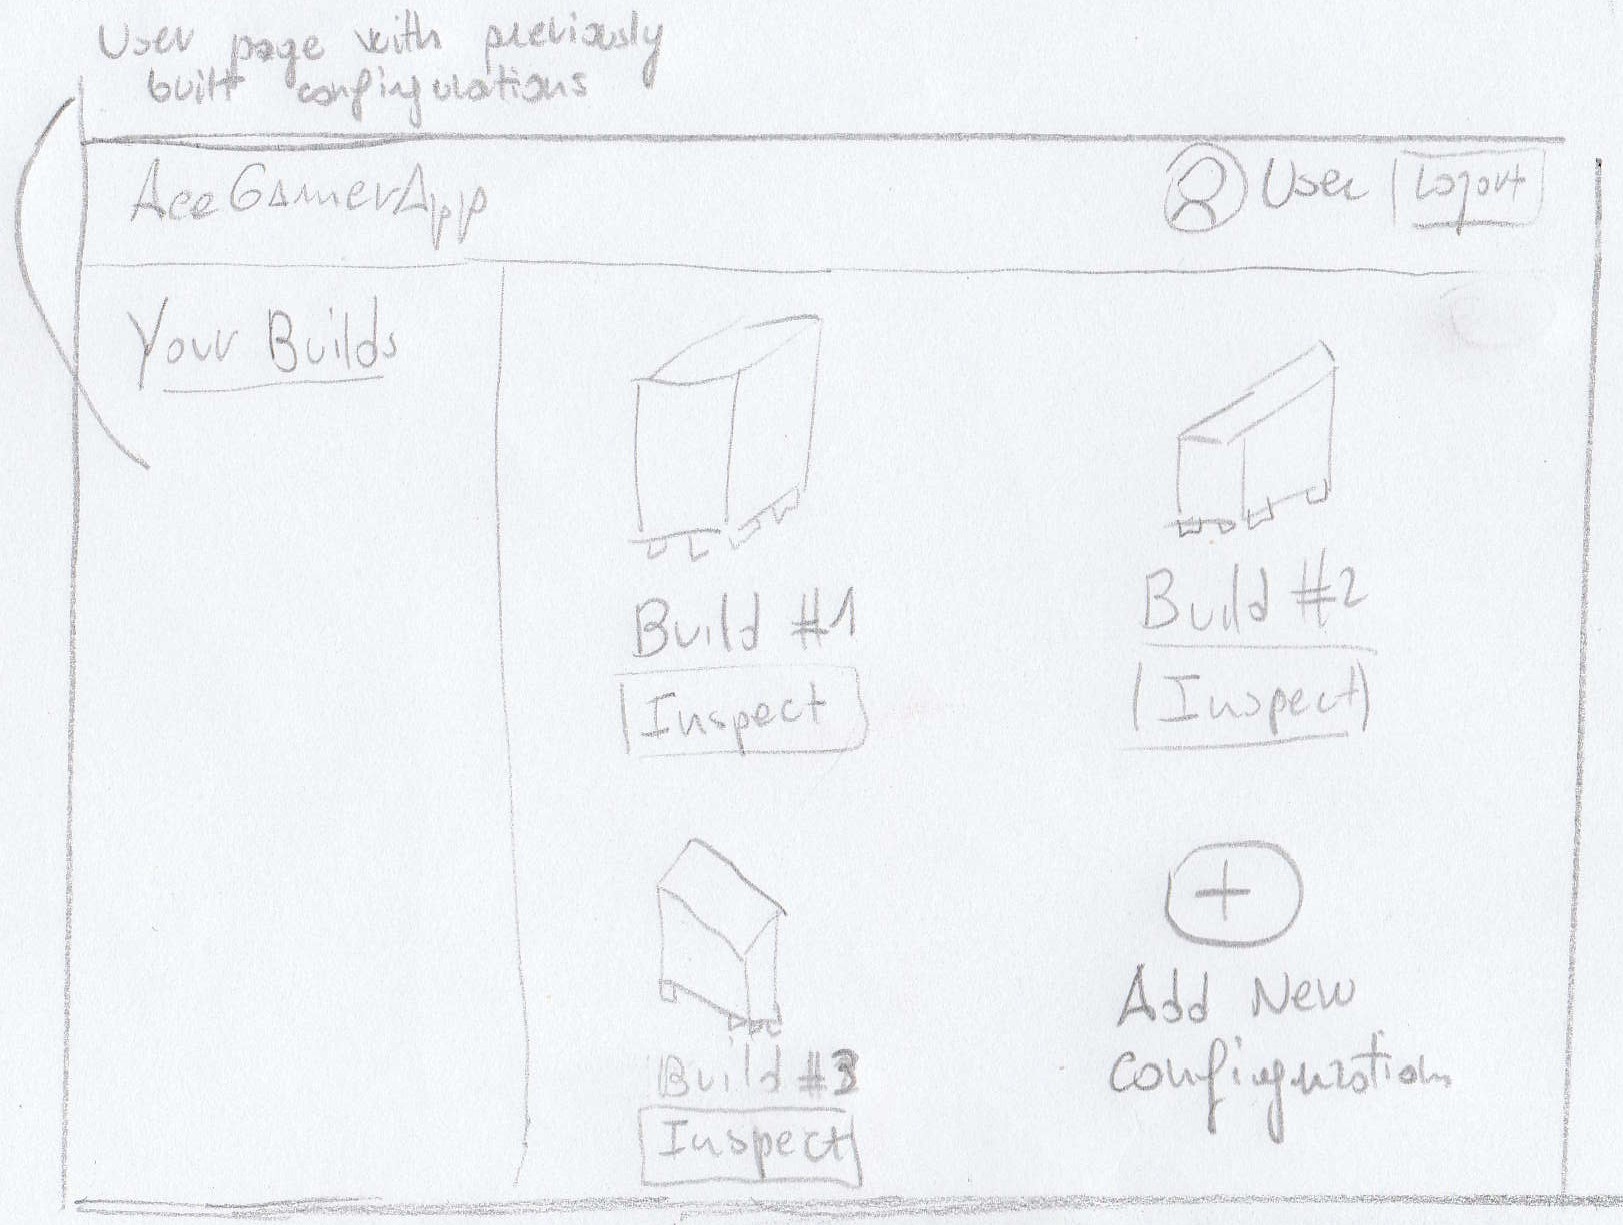 User page with previously
built configurations
AceGamerApp
User
Logout
Your Builds
Build #1
Inspect
Build #2
Inspect
Build #3
Inspect
+
Add New
configuration